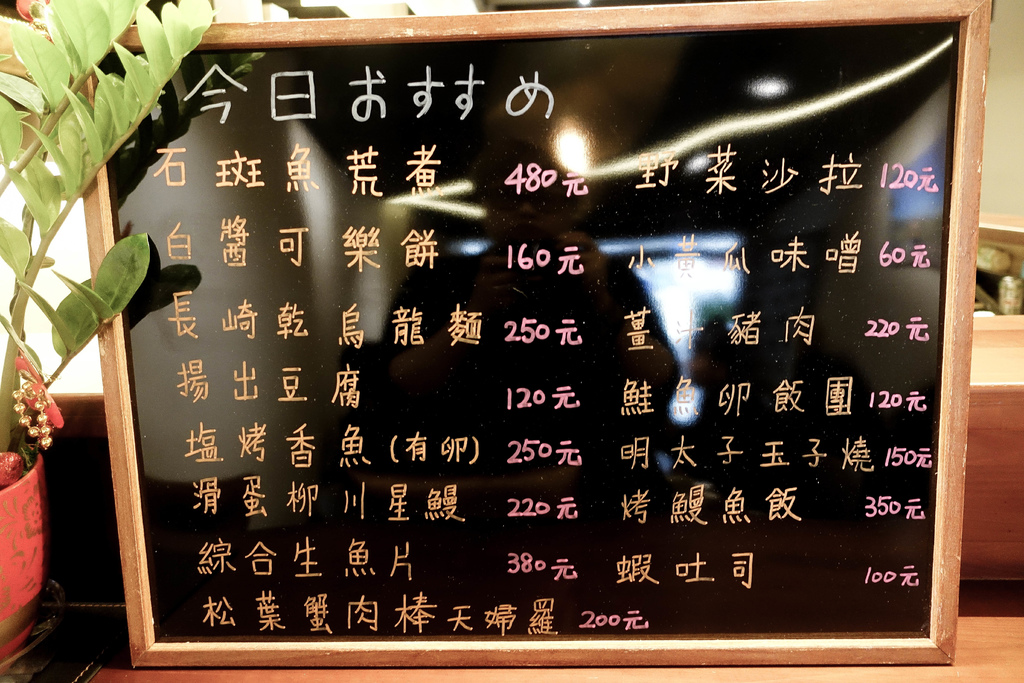 今日おすすめ
石斑魚荒煮 480元
白醬可樂餅 160元
長崎乾烏龍麵 250元
揚出豆腐 120元
塩烤香魚(有卵) 250元
滑蛋柳川星鰻 220元
綜合生魚片 380元
松葉蟹肉棒天婦羅 200元
野菜沙拉 120元
小黃瓜味噌 60元
薑汁豬肉 220元
鮭魚卵飯團 120元
明太子玉子燒 150元
烤鰻魚飯 350元
蝦吐司 100元